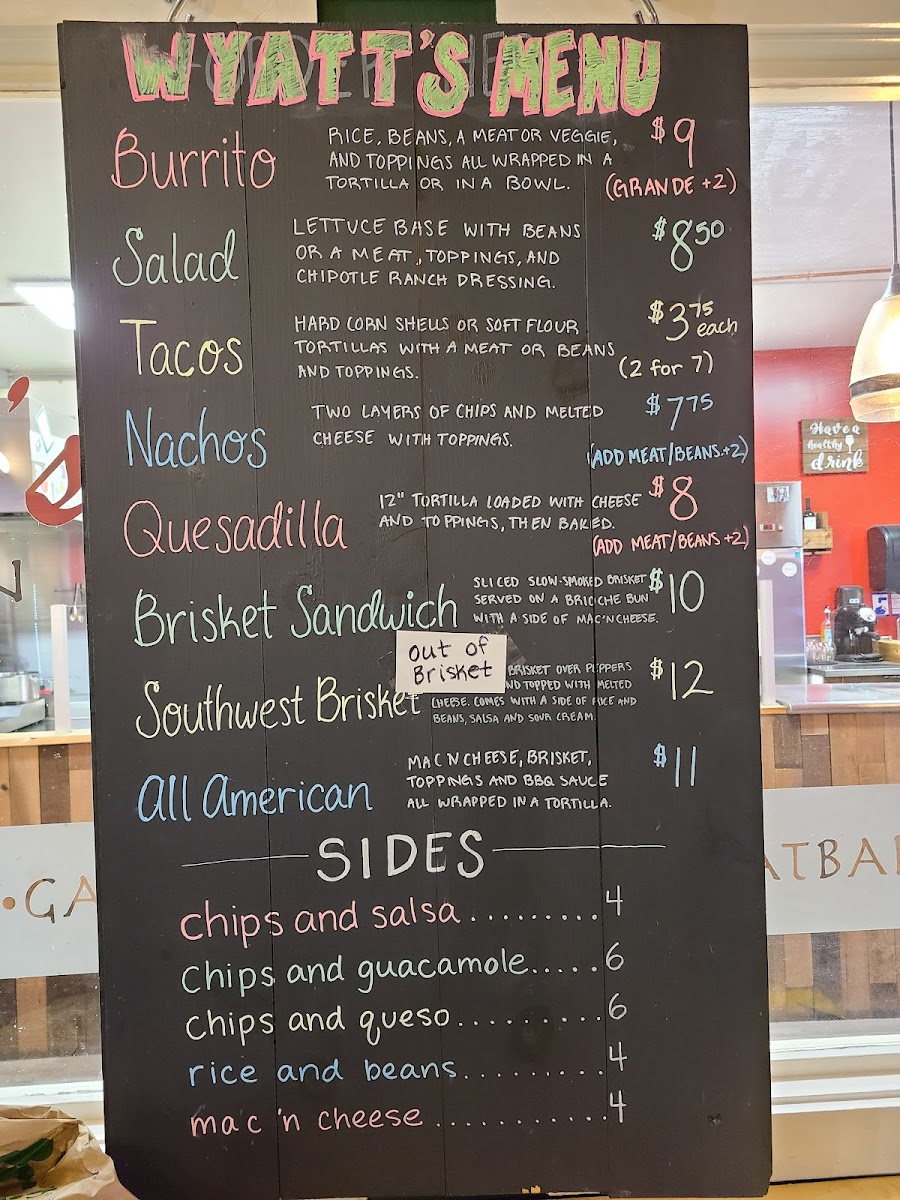 WYATT'S MENU
Burrito
RICE, BEANS, A MEAT OR VEGGIE,
AND TOPPINGS ALL WRAPPED IN A
TORTILLA OR IN A BOWL.
$9
(GRANDE +2)
Salad
LETTUCE BASE WITH BEANS
OR A MEAT, TOPPINGS, AND
CHIPOTLE RANCH DRESSING.
$8.50
Tacos
HARD CORN SHELLS OR SOFT FLOUR
TORTILLAS WITH A MEAT OR BEANS
AND TOPPINGS.
$3.75 each
(2 for 7)
Nachos
TWO LAYERS OF CHIPS AND MELTED
CHEESE WITH TOPPINGS.
$7.75
(ADD MEAT/BEANS +2)
Quesadilla
12" TORTILLA LOADED WITH CHEESE
AND TOPPINGS, THEN BAKED.
$8
(ADD MEAT/BEANS +2)
Brisket Sandwich
SLICED SLOW-SMOKED BRISKET
SERVED ON A BRIOCHE BUN
WITH A SIDE OF MAC'N CHEESE.
$10
out of
Brisket
Southwest Brisket
BRISKET OVER PEPPERS
ND TOPPED WITH MELTED
CHEESE. COMES WITH A SIDE OF RICE AND
BEANS, SALSA AND SOUR CREAM.
$12
All American
MAC N CHEESE, BRISKET,
TOPPINGS AND BBQ SAUCE
ALL WRAPPED IN A TORTILLA.
$11
SIDES
chips and salsa.........4
chips and guacamole.....6
chips and queso.........6
rice and beans..........4
mac 'n cheese...........4
Have a
healthy
drink
•GA
ATBA